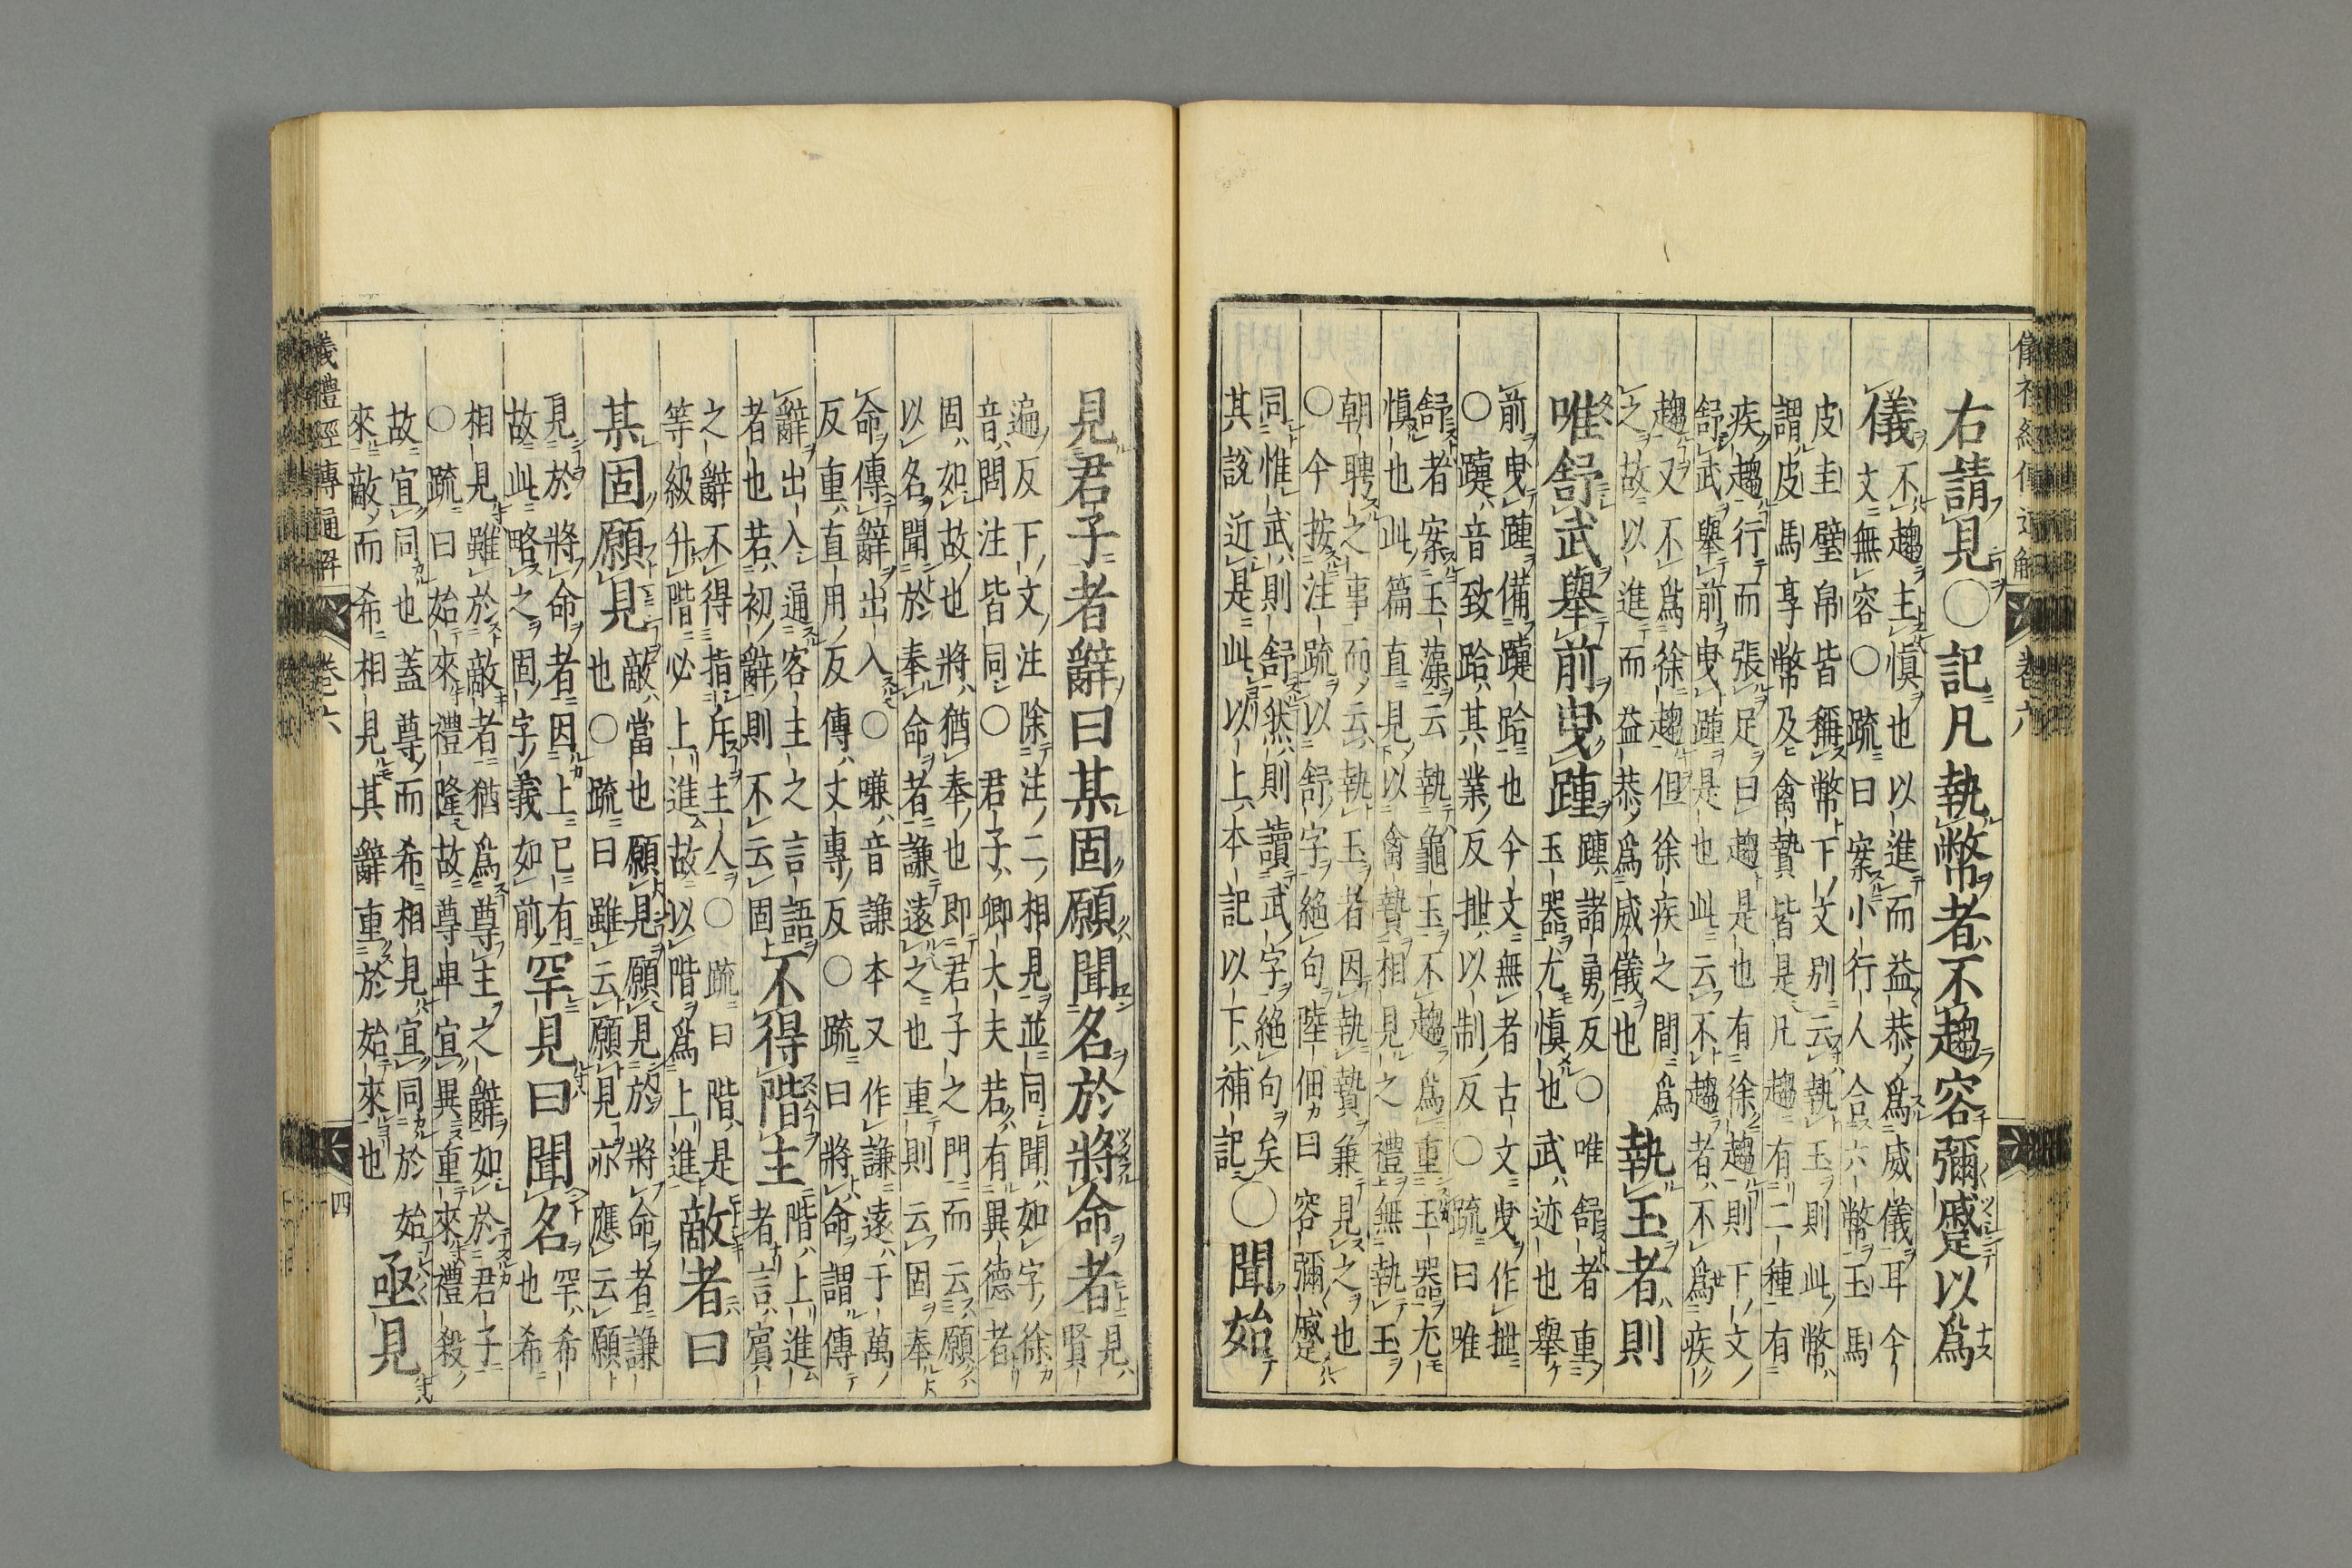 儀禮經傳通解 卷六
右請見○記凡執幣者不趨容彌蹙以爲
儀
不趨主慎也以進而益恭爲威儀耳今
文無容○疏曰案小行人合六幣玉馬
皮圭璧帛皆稱幣下文别云執玉則此幣
謂皮馬享幣及禽贄皆是凡趨有二種有
疾趨行而張足曰趨是也有徐趨則下文
舒武舉前曳踵是也此云不趨者不爲疾
趨又不爲徐趨但徐疾之間爲
之故以進而益恭爲威儀也
執玉者則
唯舒武舉前曳踵
踵諸勇反○唯舒者重
玉器尤慎也武迹也舉
前曳踵備躓跲也今文無者古文曳作抴
○躓音致跲其業反抴以制反○疏曰唯
舒者案玉藻云執龜玉不趨爲重玉器尤
慎也此篇直見以禽贄相見之禮無執玉
朝聘之事而云執玉者因執贄兼見之也
○今按注疏以舒字絶句陸佃曰容彌蹙
同惟武則舒然則讀武字絶句矣
其說近是此以上本記以下補記
○聞始
見君子者辭曰某固願聞名於將命者
見
賢
遍反下文注除注二相見並同聞如字徐
音問注皆同○君子卿大夫若有異德者
固如故也將猶奉也即君子之門而云願
以名聞於奉命者謙遠之也重則云固奉
命傳辭出入○嗛音謙本又作謙遠于萬
反重直用反傳丈專反○疏曰將命謂傳
辭出入通客主之言語
者也若初辭則不云固
不得階主
階上進
者言賓
之辭不得指斥主人○疏曰階是
等級升階必上進故以階爲上進
敵者曰
某固願見
敵當也願見願見於將命者謙
也○疏曰雖云願見亦應云願
見於將命者因上已有
故此略之固字義如前
罕見曰聞名
罕希
也希
相見雖於敵者猶爲尊主之辭如於君子
○疏曰始來禮隆故尊卑宜異重來禮殺
故宜同也蓋尊而希相見宜同於始
來敵而希相見其辭重於始來也
亟見
儀禮經傳通解 卷六 四